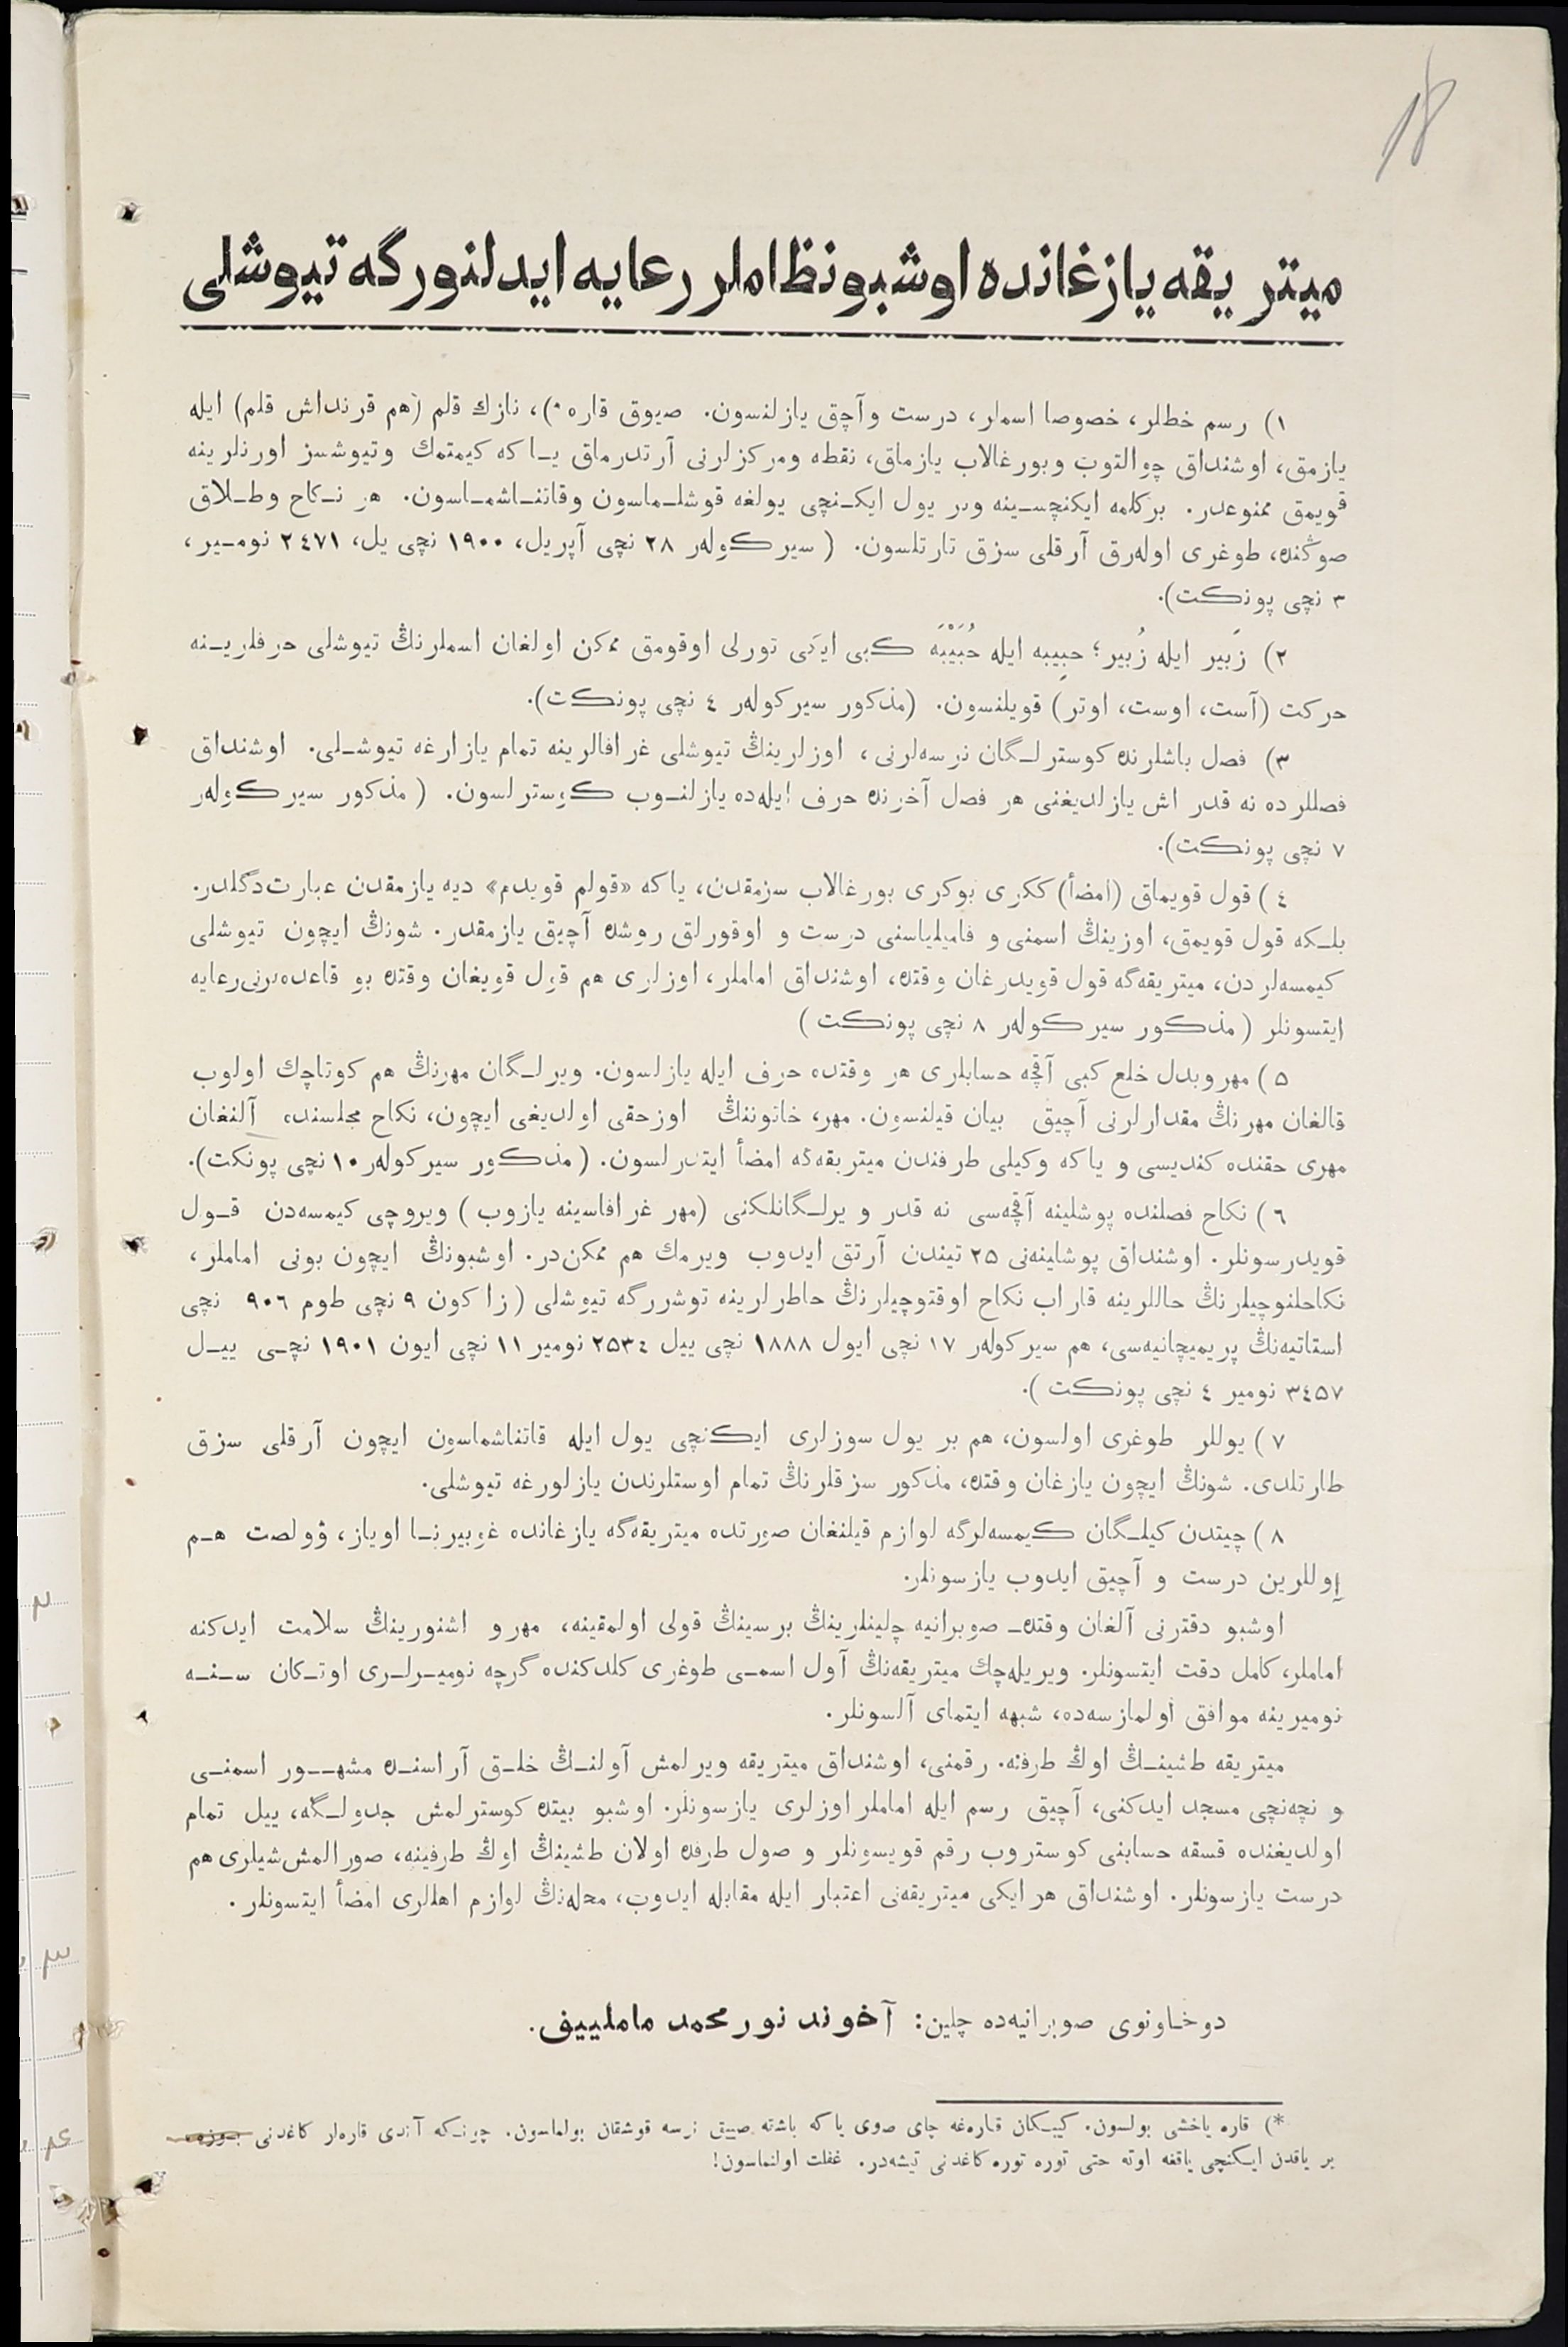 18
ميتريقه يازغانده اوشبو نظاملر رعايه ايدلنورگه تيوشلى
١) رسم خطلر، خصوصا اسملر، درست وآچق يازلنسون. صيوق قاره *)، نازك قلم (هم قرنداش قلم) ايله
يازمق، اوشنداق چوالتوب وبورغالاب يازماق، نقطه ومركزلرنى آرتدرماق ياكه كيمتمك وتيوشسز اورنلرينه
قويمق ممنوعدر. بركلمه ايكنچسينه وبر يول ايكنچى يولغه قوشلماسون وقاتناشماسون. هر نكاح وطلاق
صوڭنده، طوغرى اوله‌رق آرقلى سزق تارتلسون. (سيركولەر ٢٨ نچى آپريل، ١٩٠٠ نچى يل، ٢٤٧١ نومير،
٣ نچى پونكت).
٢) زَبير ايله زُبير؛ حبِيبه ايله حُبَيْبَه كبى ايكى تورلى اوقومق ممكن اولغان اسملرنڭ تيوشلى حرفلرينه
حركت (آست، اوست، اوتر) قويلنسون. (مذكور سيركولەر ٤ نچى پونكت).
٣) فصل باشلرنده كوسترلگان نرسه‌لرنى، اوزلرينڭ تيوشلى غرافالرينه تمام يازارغه تيوشلى. اوشنداق
فصللرده نه قدر اش يازلديغنى هر فصل آخرنده حرف ايله‌ده يازلنوب كوسترلسون. (مذكور سيركولەر
٧ نچى پونكت).
٤) قول قويماق (امضأ) ككرى بوكرى بورغالاب سزمقدن، ياكه «قولم قويدم» ديه يازمقدن عبارت دگلدر.
بلكه قول قويمق، اوزينڭ اسمنى و فاميلياسنى درست و اوقورلق روشده آچيق يازمقدر. شونڭ ايچون تيوشلى
كيمسه‌لردن، ميتريقه‌گه قول قويدرغان وقتده، اوشنداق اماملر، اوزلرى هم قول قويغان وقتده بو قاعده‌لرنى رعايه
ايتسونلر (مذكور سيركولەر ٨ نچى پونكت)
٥) مهر وبدل خلع كبى آقچه حسابلرى هر وقتده حرف ايله يازلسون. ويرلگان مهرنڭ هم كوتاچك اولوب
قالغان مهرنڭ مقدارلرنى آچيق بيان قيلنسون. مهر، خاتوننڭ اوزحقى اولديغى ايچون، نكاح مجلسنده آلنغان
مهرى حقنده كنديسى و ياكه وكيلى طرفندن ميتريقه‌گه امضأ ايتدرلسون. (مذكور سيركولەر ١٠ نچى پونكت).
٦) نكاح فصلنده پوشلينه آقچه‌سى نه قدر ويرلگانلكنى (مهر غرافاسينه يازوب) ويروچى كيمسه‌دن قول
قويدرسونلر. اوشنداق پوشلينه‌نى ٢٥ تيندن آرتق ايدوب ويرمك هم ممكن‌در. اوشبونڭ ايچون بونى اماملر،
نكاحلنوچيلرنڭ حاللرينه قاراب نكاح اوقتوچيلرنڭ خاطرلرينه توشررگه تيوشلى (زاكون ٩ نچى طوم ٩٠٦ نچى
استاتيه‌نڭ پريميچانيه‌سى، هم سيركولەر ١٧ نچى ايول ١٨٨٨ نچى ييل ٢٥٣٤ نومير ١١ نچى ايون ١٩٠١ نچى ييل
٣٤٥٧ نومير ٤ نچى پونكت).
٧) يوللر طوغرى اولسون، هم بر يول سوزلرى ايكنچى يول ايله قاتناشماسون ايچون آرقلى سزق
طارتلدى. شونڭ ايچون يازغان وقتده، مذكور سزقلرنڭ تمام اوستلرندن يازلورغه تيوشلى.
٨) چيتدن كيلگان كيمسه‌لرگه لوازم قيلنغان صورتده ميتريقه‌گه يازغانده غوبيرنا اوياز، ۋولصت هم
اوللرين درست و آچيق ايدوب يازسونلر.
اوشبو دفترنى آلغان وقتده صوبرانيه چلينلرينڭ برسينڭ قولى اولمقينه، مهر و اشنورينڭ سلامت ايدكنه
اماملر، كامل دقت ايتسونلر. ويريله‌چك ميتريقه‌نڭ آول اسمى طوغرى كلدكنده گرچه نوميرلرى اوتكان سنه
نوميرينه موافق اولمازسه‌ده، شبهه ايتماى آلسونلر.
ميتريقه طشينڭ اوڭ طرفنه. رقمنى، اوشنداق ميتريقه ويرلمش آولنڭ خلق آراسنده مشهور اسمنى
و نچه‌نچى مسجد ايدكنى، آچيق رسم ايله اماملر اوزلرى يازسونلر. اوشبو بيتده كوسترلمش جدولگه، ييل تمام
اولديغنده قسقه حسابنى كوستروب رقم قويسونلر و صول طرفده اولان طشينڭ اوڭ طرفينه، صورالمش شيلرى هم
درست يازسونلر. اوشنداق هر ايكى ميتريقه‌نى اعتبار ايله مقابله ايدوب، محله‌نڭ لوازم اهللرى امضأ ايتسونلر.
دوخاونوى صوبرانيه‌ده چلين: آخوند نورمحمد ماملييف.
*) قاره ياخشى بولسون. كيبكان قاره‌غه چاى صوى ياكه باشقه صييق نرسه قوشقان بولماسون. چونكه آندى قاره‌لر كاغدنى
بر ياقدن ايكنچى ياقغه اوته حتى توره توره كاغدنى تيشه‌در. غفلت اولنماسون!